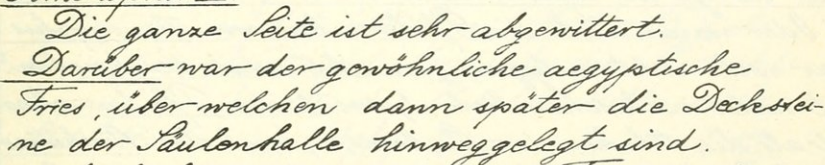 Die ganze Seite ist sehr abgewittert.
Darüber war der gewöhnliche aegyptische
Fries, über welchen dann später die Deckstei-
ne der Säulenhalle hinweggelegt sind.